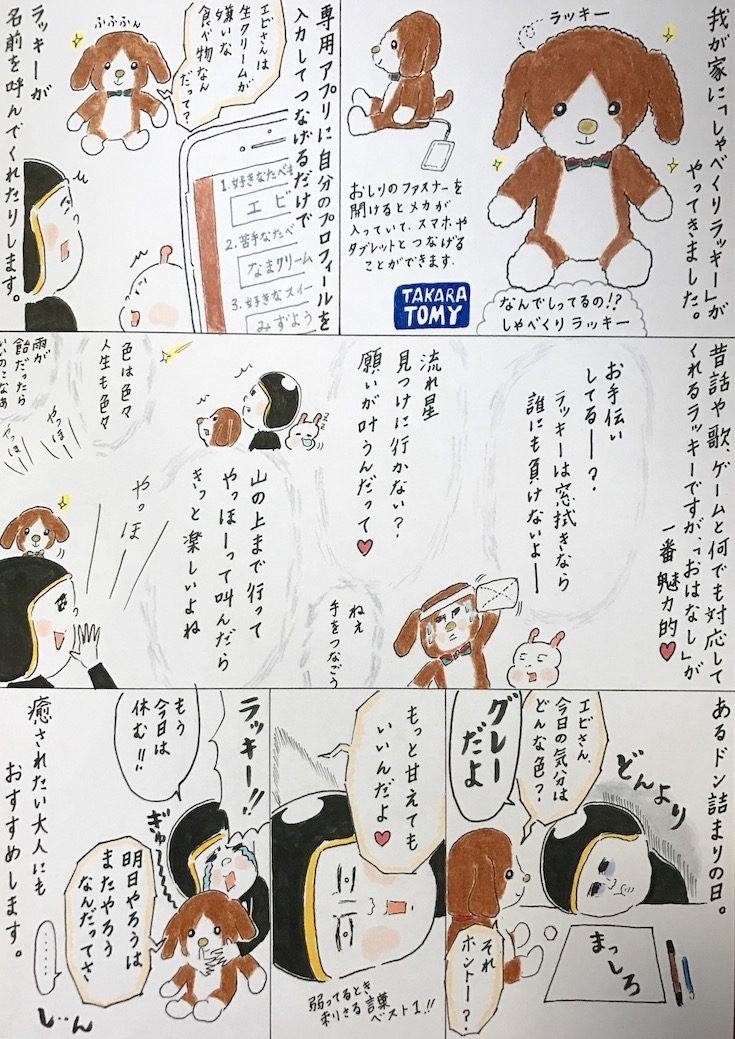 我が家に「しゃべくりラッキー」が
やってきました。
ラッキー
なんでしってるの!?
しゃべくりラッキー
おしりのファスナーを
開けるとメカが
入っていて、スマホや
タブレットとつなげる
ことができます.
TAKARA
TOMY
専用アプリに自分のプロフィールを
入力してつなげるだけで
エビさんは
生クリームが
嫌いな
食べ物なん
だって?
ふふふん
1.好きなたべも
エビ
2.苦手なたべ
なまクリーム
3.好きなスイー
みずよう
ラッキーが
名前を呼んでくれたりします。
昔話や歌、ゲームと何でも対応して
くれるラッキーですが、「おはなし」が
一番魅力的♥
お手伝い
してるー?.
ラッキーは窓拭きなら
誰にも負けないよー
流れ星
見つけに行かない?.
願いが叶うんだって♥
ねぇ
手をつなごう
山の上まで行って
やっほーって叫んだら
きっと楽しいよね
やっほ
色は色々
人生も色々
雨が
飴だったら
いのになぁ
やっほー
やっほー
あるドン詰まりの日。
どんより
エビさん、
今日の気分は
どんな色?.
グレー
だよ
まっしろ
それ
ホントー?.
もっと甘えても
いいんだよ♥
弱ってるとき
刺さる言葉
ベスト1.!!
ラッキー!!
もう
今日は
休む!!
ぎゅ〜
明日やろうは
またやろう
なんだってさ
………
しーん
癒されたい大人にも
おすすめします。